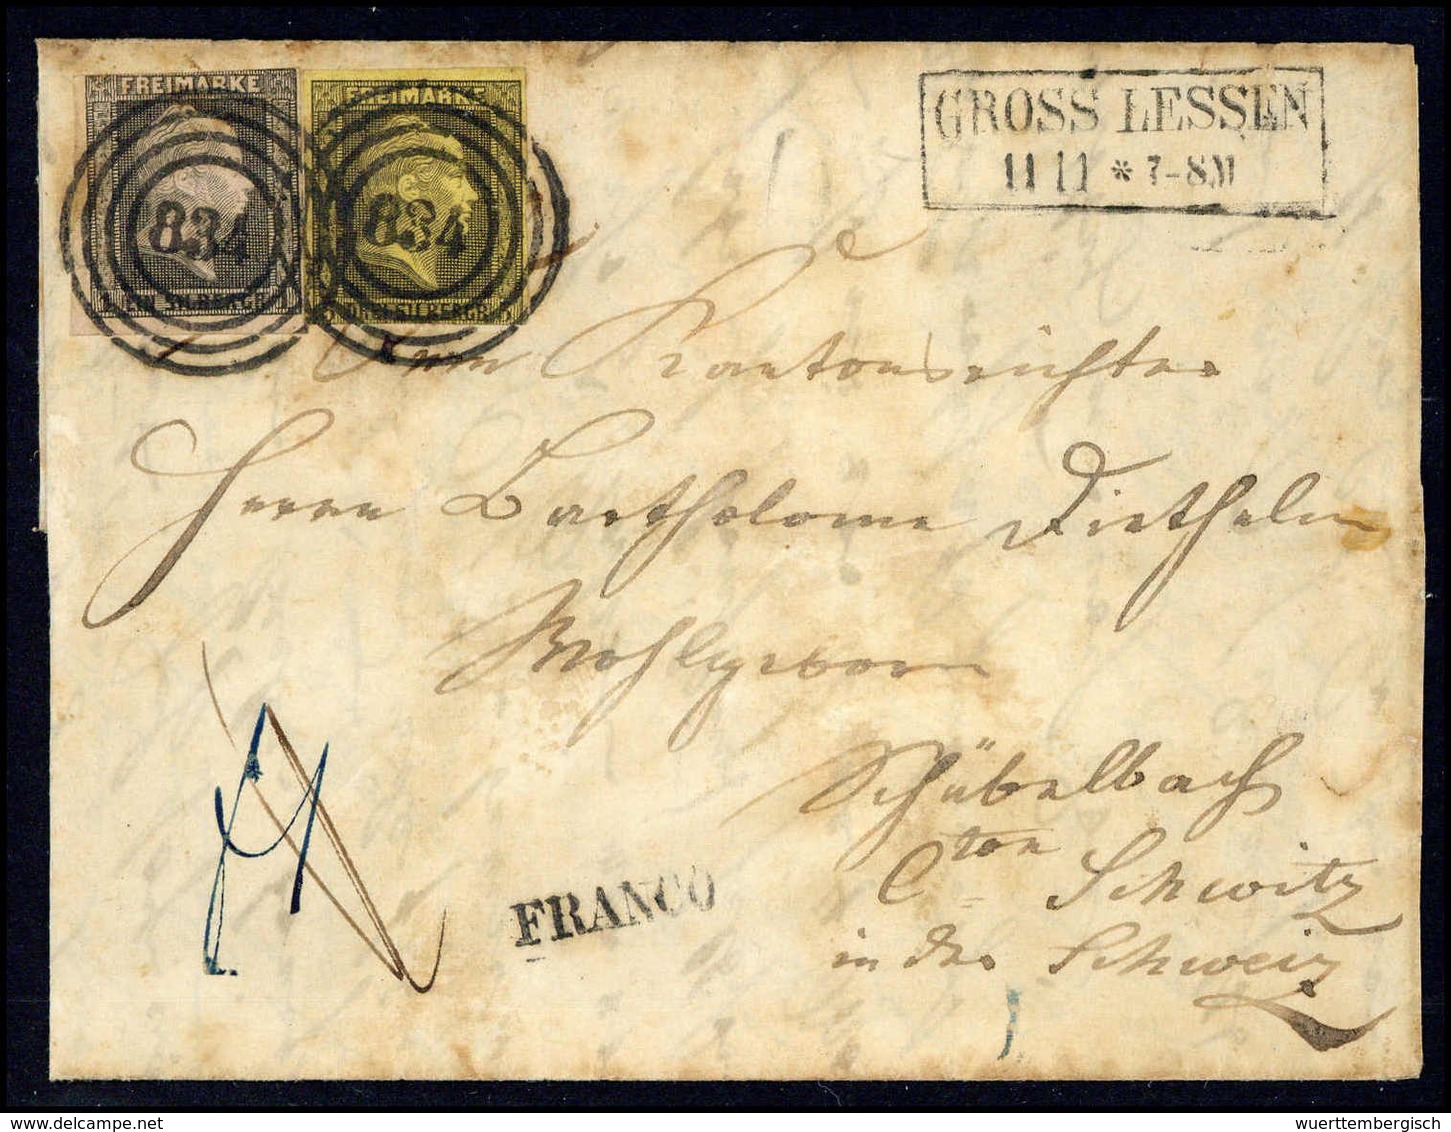 FREIMARKE
834
EIN SILBERGR.
FREIMARKE
834
DREI SILBERGR.
GROSS LESSEN
11 11 * 7-8M
Kantonsrichter
Herrn Bartholome Diethelm
Wohlgeborn
Schübelbach
Cton Schwitz
in der Schweiz
FRANCO
wuerttembergisch